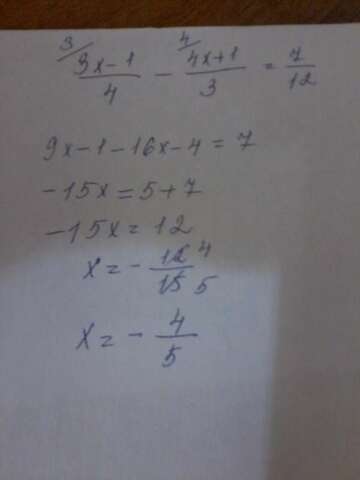 3/ (3x-1)/4 - 4/ (4x+1)/3 = 7/12
9x-1-16x-4=7
-15x=5+7
-15x=12
x=-12/15 4/5
x=-4/5